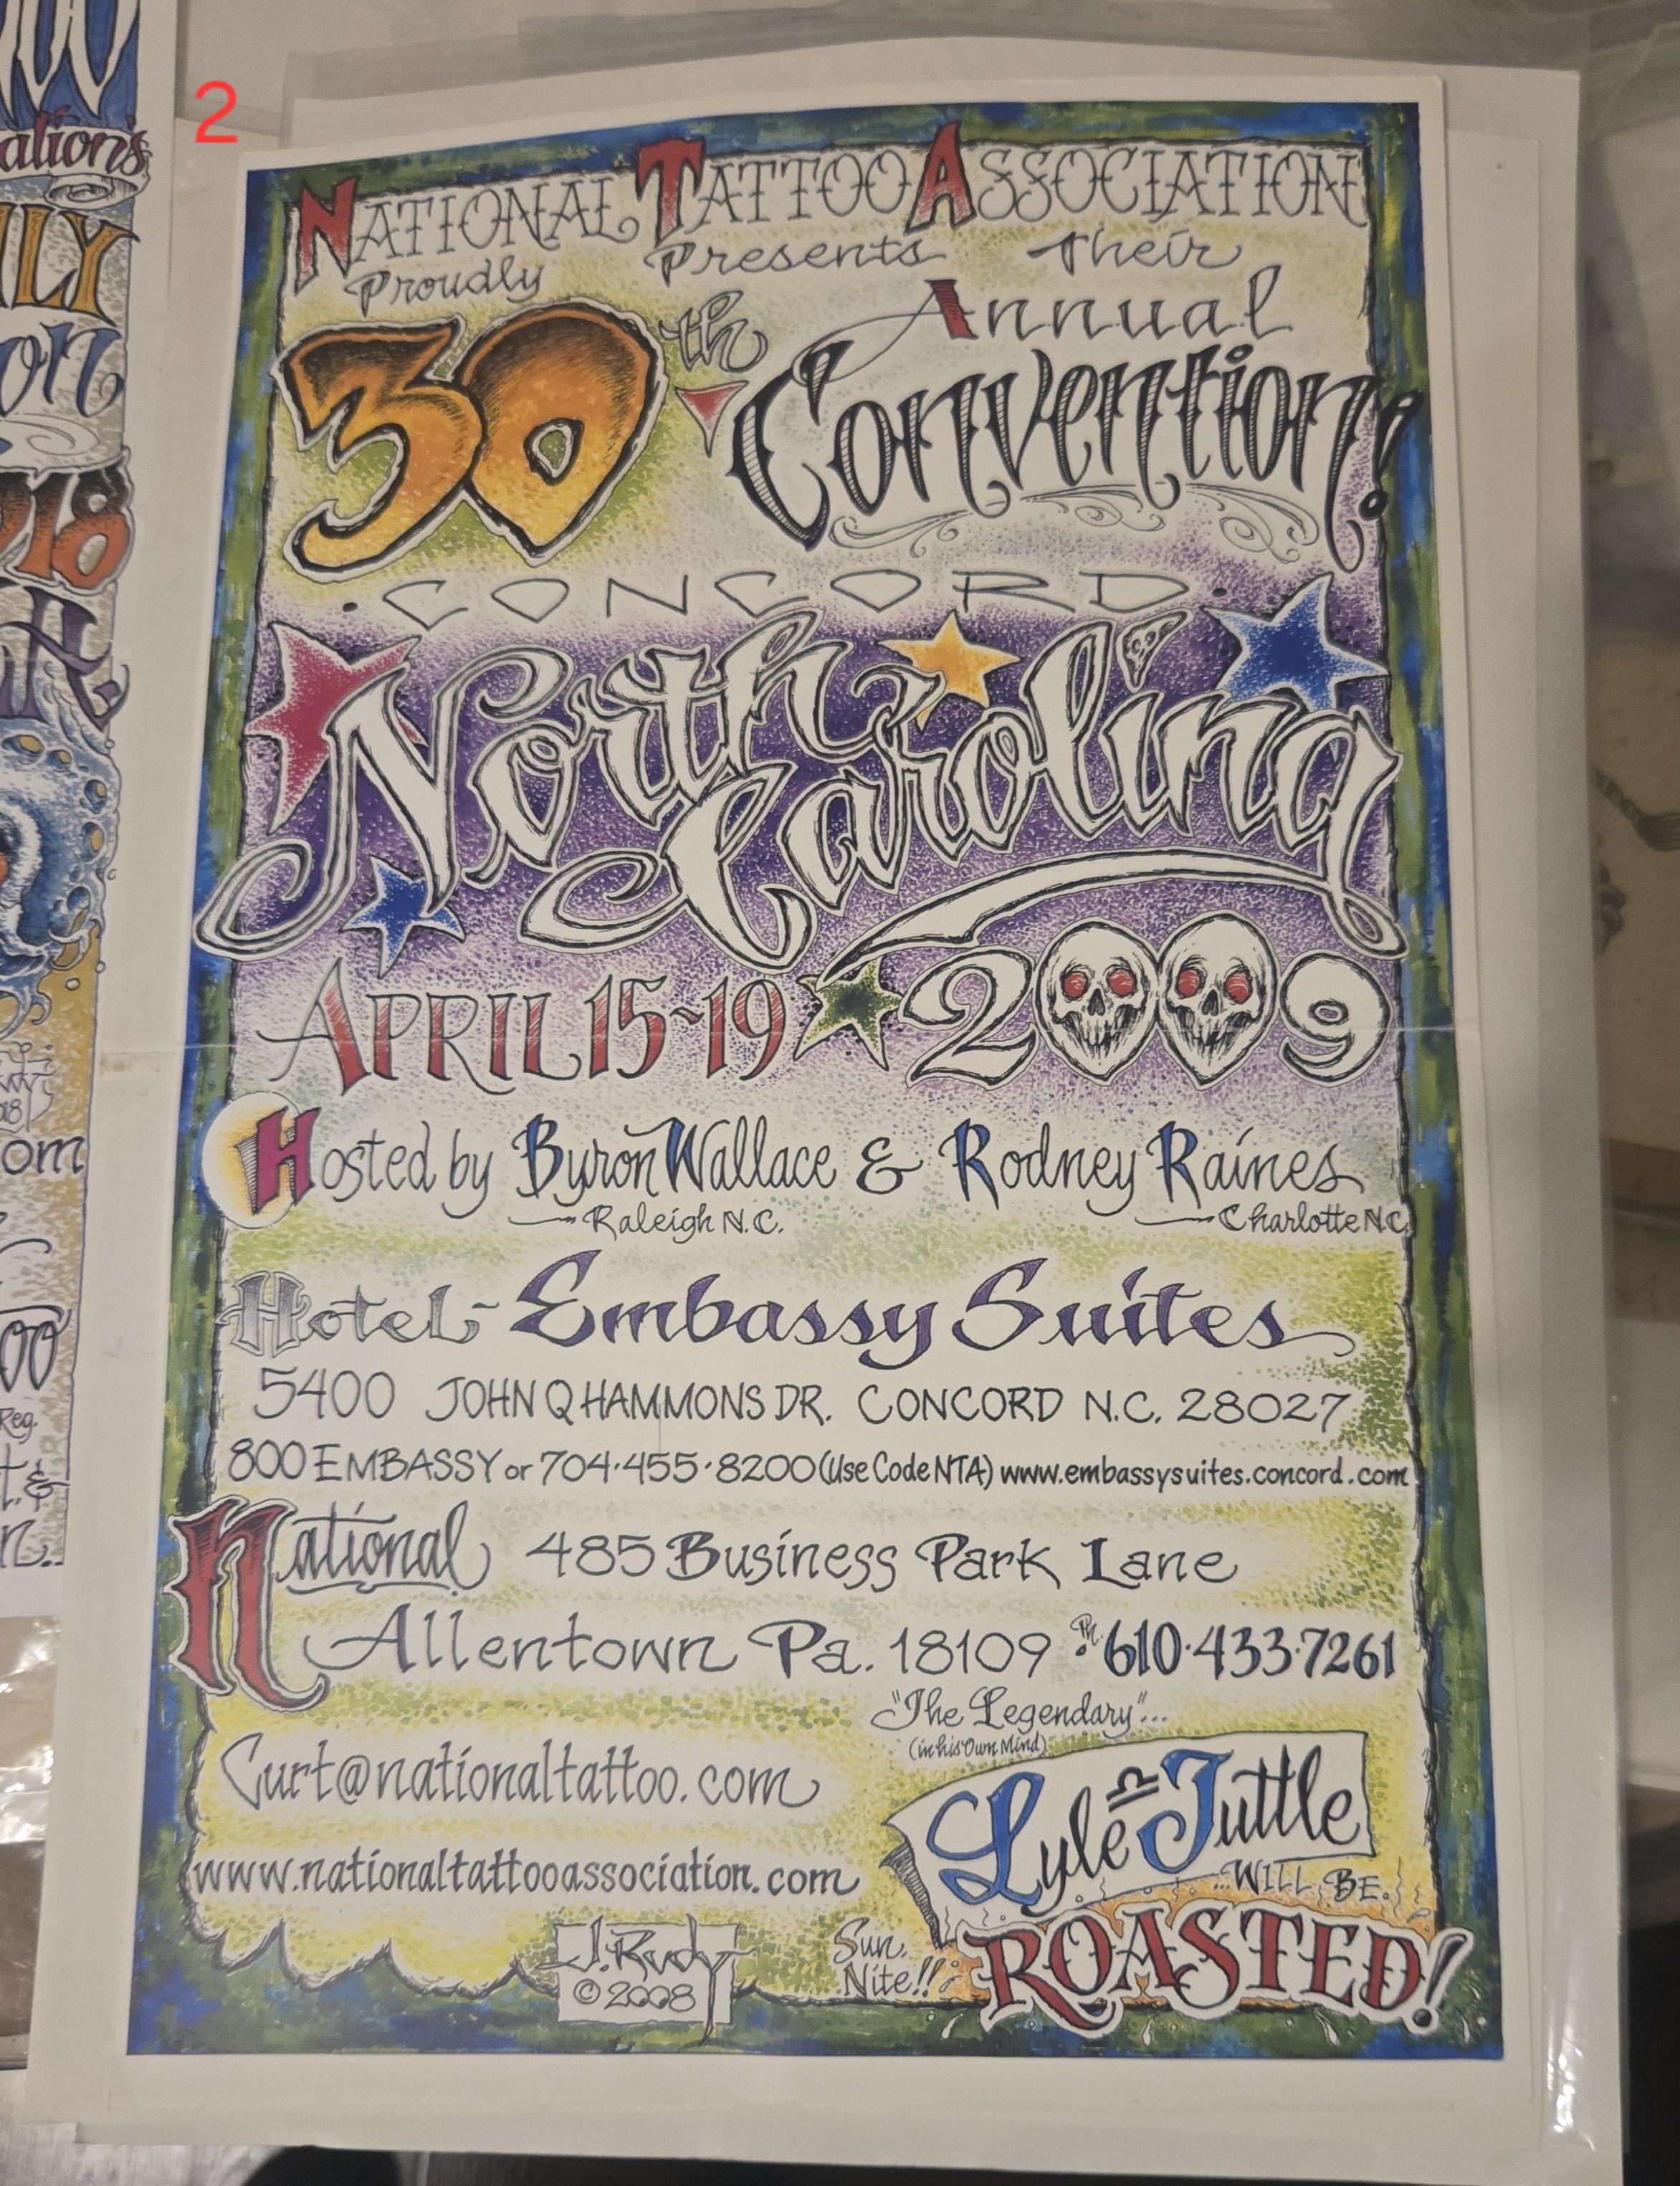 2
NATIONAL TATTOO ASSOCIATION
Proudly Presents Their
30th Annual
Convention!
CONCORD
North Carolina
APRIL 15-19 2009
Hosted by Byron Wallace & Rodney Raines
Raleigh N.C. Charlotte N.C.
Hotel- Embassy Suites
5400 JOHN Q HAMMONS DR. CONCORD N.C. 28027
800 EMBASSY or 704·455·8200 (Use Code NTA) www.embassysuites.concord.com
National 485 Business Park Lane
Allentown Pa. 18109 Ph. 610·433·7261
"The Legendary"...
(in his Own Mind)
Curt@nationaltattoo.com
Lyle Tuttle
www.nationaltattooassociation.com
...WILL BE.
Sun. Nite!! ROASTED!
J. Rudy
© 2008
ation's
ILY
on
18
om
oo
Reg.
t. &
n.